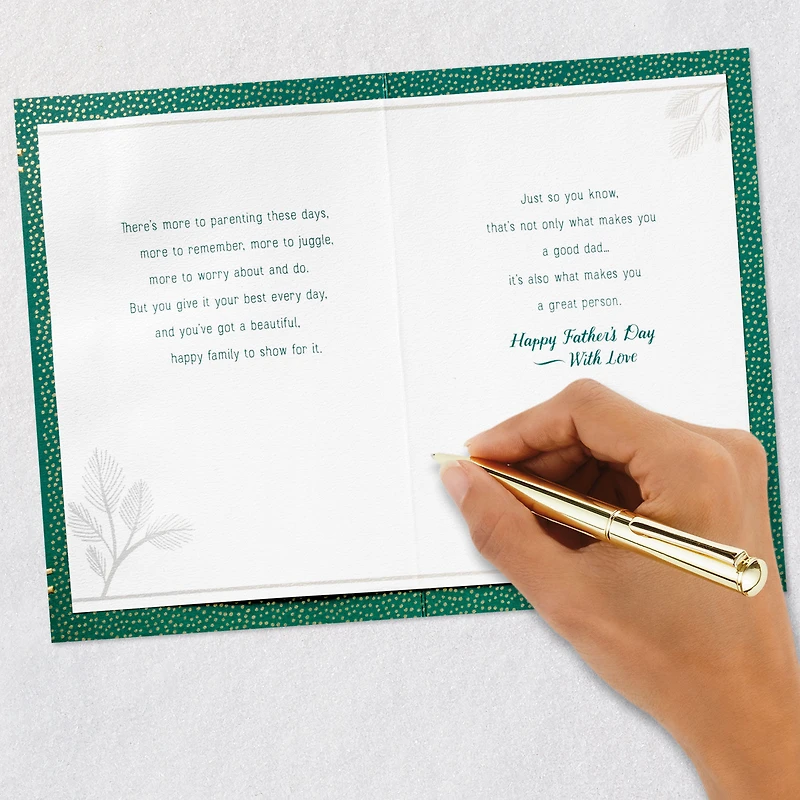 There's more to parenting these days,
more to remember, more to juggle,
more to worry about and do.
But you give it your best every day,
and you've got a beautiful,
happy family to show for it.
Just so you know,
that's not only what makes you
a good dad...
it's also what makes you
a great person.
Happy Father's Day
With Love